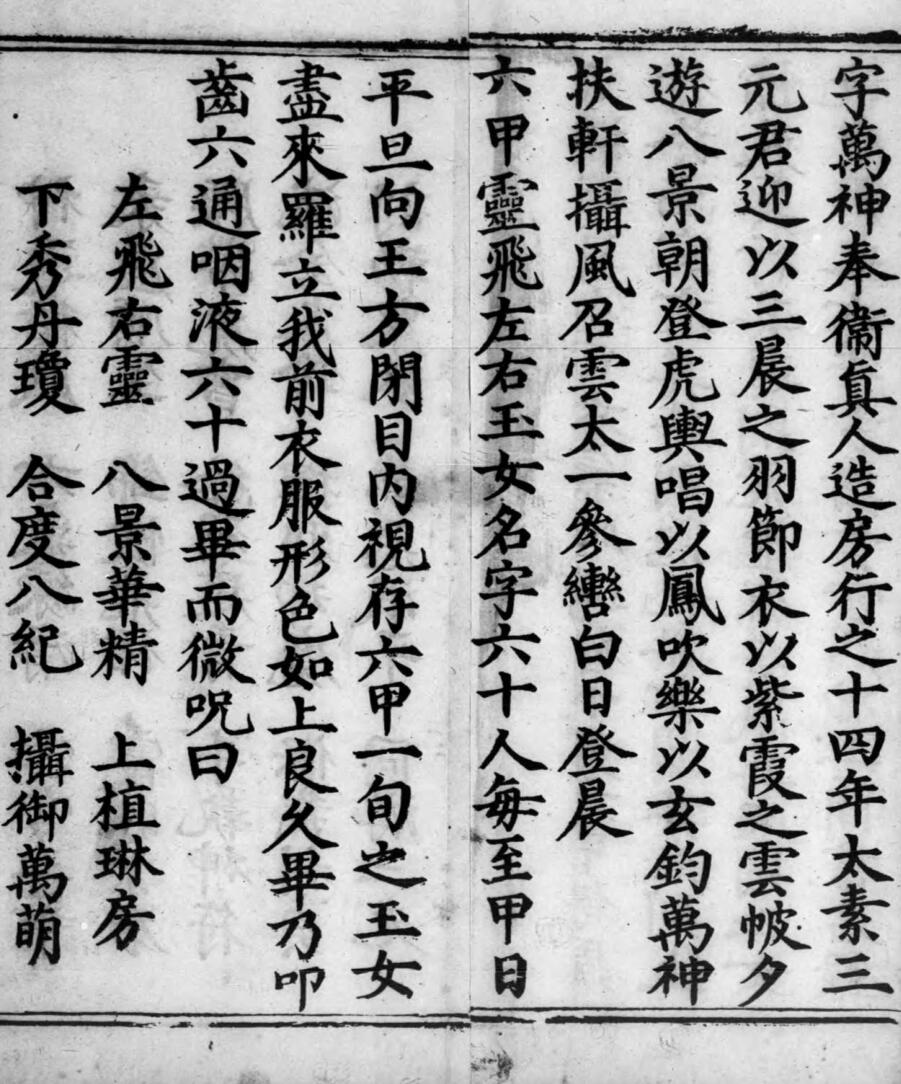 字萬神奉衞真人造房行之十四年太素三
元君迎以三晨之羽節衣以紫霞之雲帔夕
遊八景朝登虎輿唱以鳳吹樂以玄鈞萬神
扶軒攝風召雲太一參轡白日登晨
六甲靈飛左右玉女名字六十人每至甲日
平旦向王方閉目内視存六甲一旬之玉女
盡來羅立我前衣服形色如上良久畢乃叩
齒六通咽液六十過畢而微呪曰
左飛右靈 八景華精 上植琳房
下秀丹瓊 合度八紀 攝御萬萌